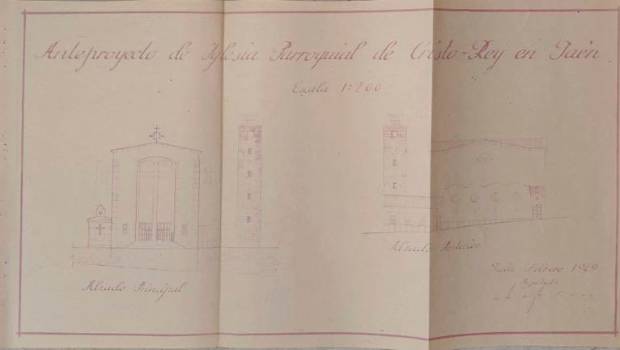 Anteproyecto de Iglesia Parroquial de Cristo-Rey en Jaén
Escala 1:200
Alzado Principal
Alzado
Jaén Febrero 1949